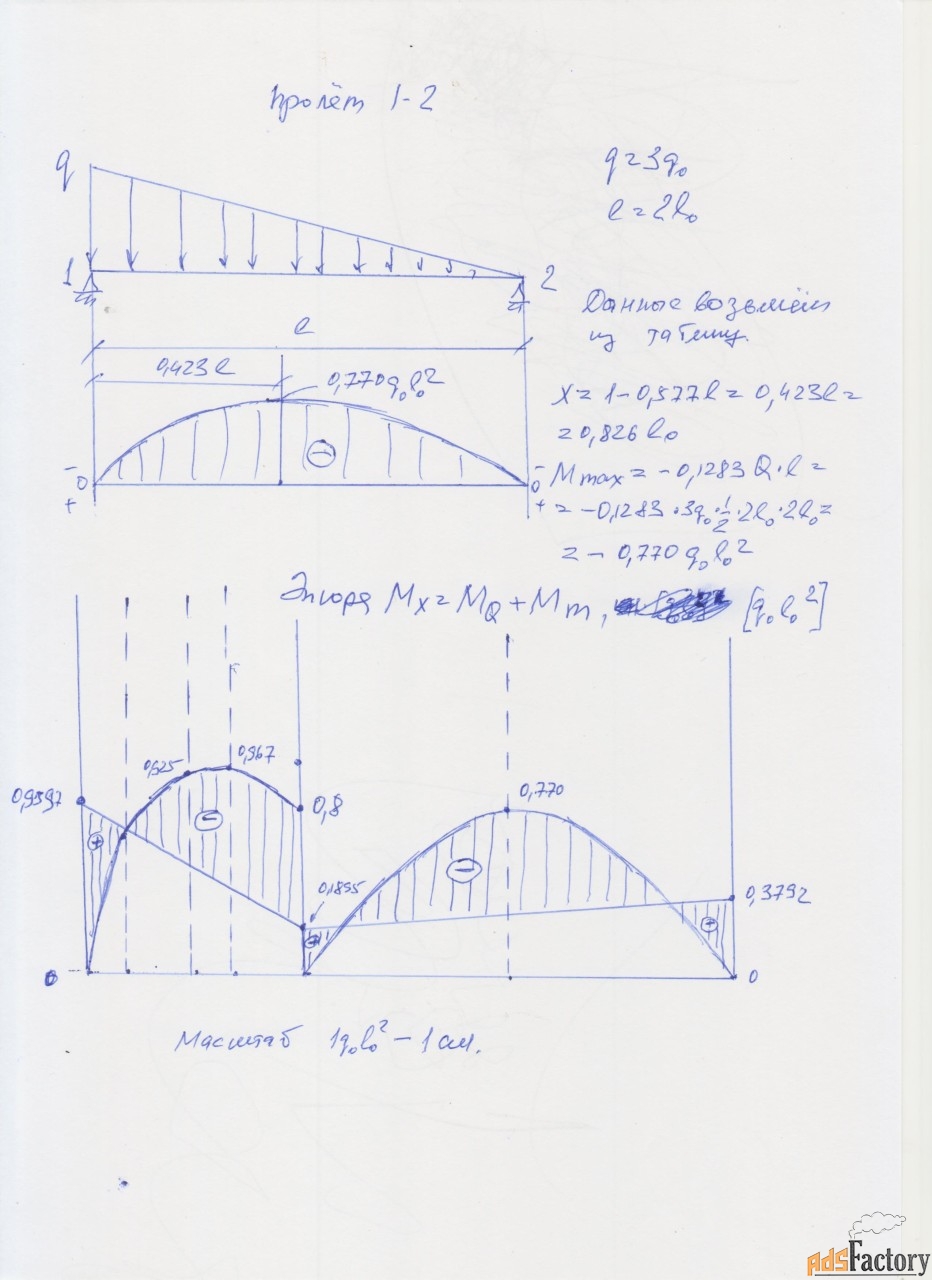 Пролёт 1-2
q
q=3q₀
l=2l₀
1
2
Данные возьмём
из таблиц.
l
0,423l
0,770q₀l₀²
x=1-0,577l=0,423l=
=0,826l₀
-
0
+
-
0
+
Mmax=-0,1283Q·l=
=-0,1283·3q₀·½·2l₀·2l₀=
=-0,770q₀l₀²
Эпюра Mx=MQ+Mm, [q₀l₀²]
0,925
0,967
0,770
0,9597
0,8
+
-
0,1895
-
0,3792
+
+
0
0
Масштаб 1q₀l₀²-1см.
AdsFactory